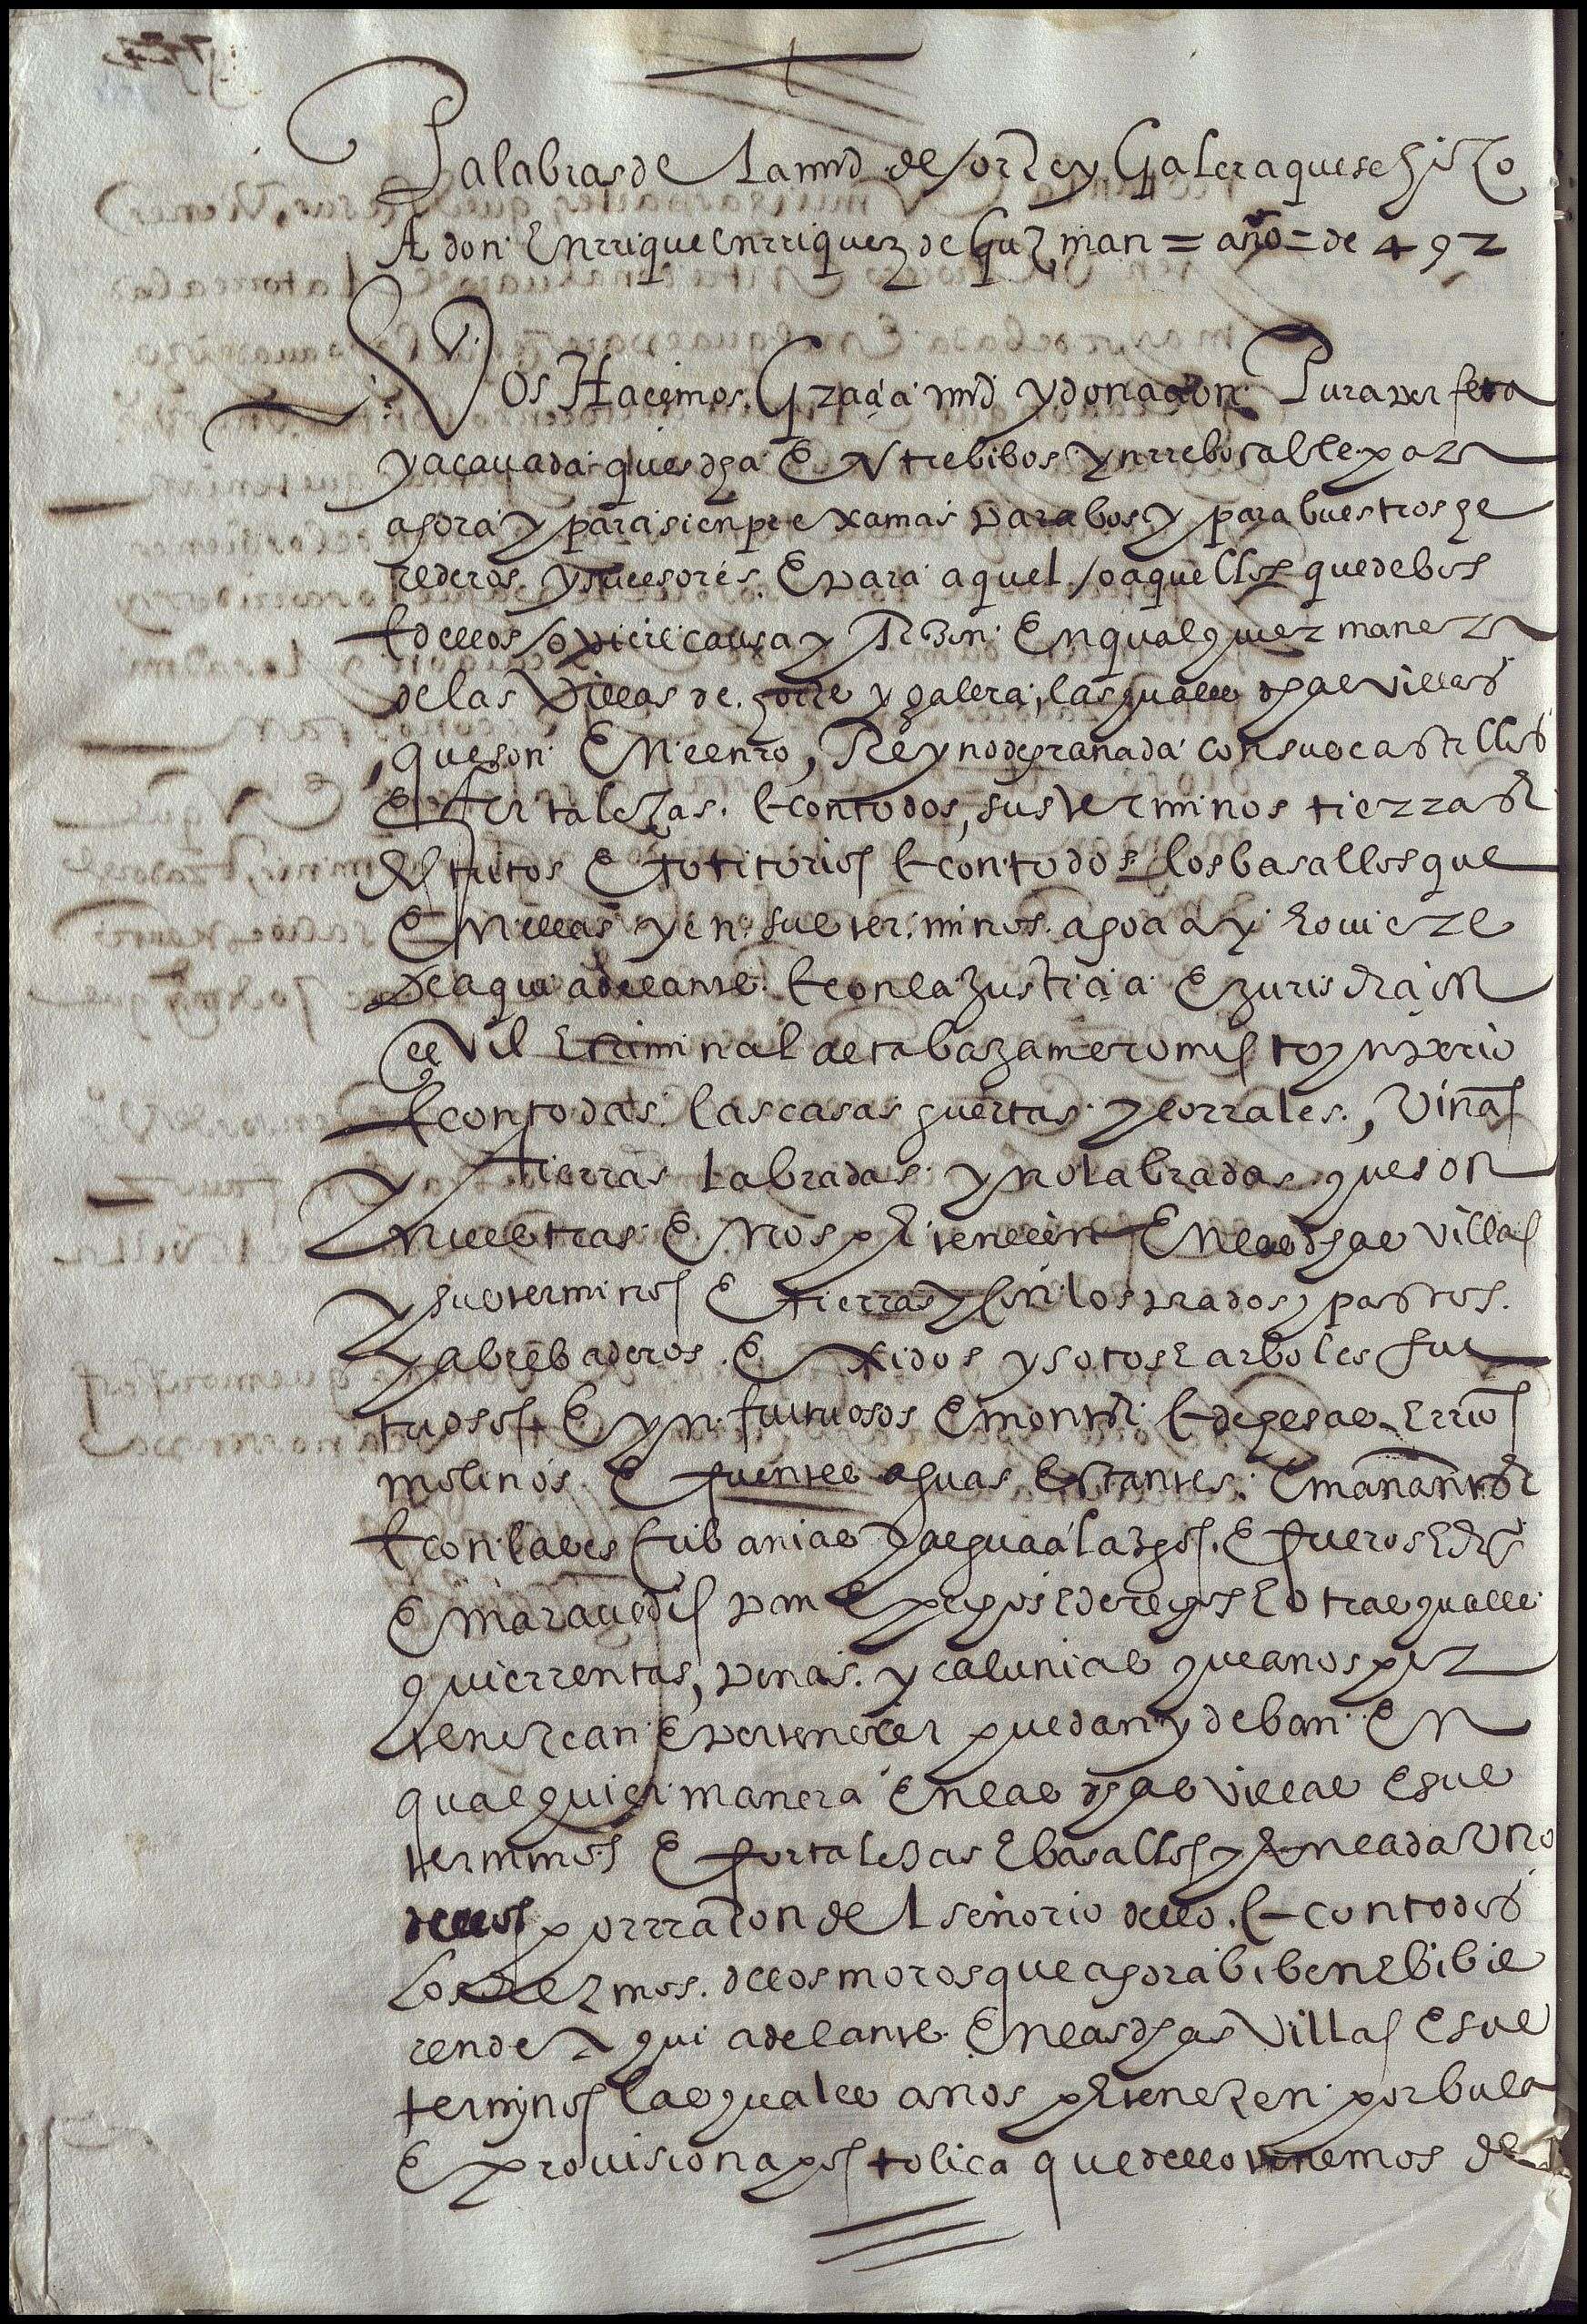 Palabras de la mrd de orze y Galera que se hizo
A don Enrrique enrriquez de Guzman = año = de 492
Vos Hacemos Graçia mrd y donaçion Pura perfeta
y acauada ques dha Entre bibos ynrrebocable para
agora y para sienpre xamas para bos y para buestros he
rederos y sucesores E para aquel o aquellos que de bos
E dellos obiere causa y Razon En qualquiera manera
de las Villas de horze y galera, las quales dhas villas
que son En el nro Reyno de granada con sus castillos
E fortalezas E con todos sus terminos tierras
destritos E totitorios E con todos los basallos que
En ellas y en sus terminos agora ay E ouiere
De aqui adelante E con la Justiçia E Jurisdiçion
çeVil E criminal alta baza mero misto ynperio
E con todas las casas guertas y corrales, Viñas
y tierras labradas y no labradas que son
nuestras E nos pertenecen En las dhas villas
y sus terminos E tierras y con los prados y pastos
y abrebaderos E Exidos y sotos E arboles fru
tuosos E ynfrutuosos E montes E dehesas E rrios
molinos E fuentes aguas Estantes E manantes
E con las escribanias y alguacilazgos E fueros E drs
E marauedis pan E pechos E derechos E otras quales
quier rentas, penas y calunias que a nos per
tenezcan E pertenecer puedan y deban En
qualquier manera En las dhas villas E sus
terminos E fortalezas E basallos y En cada uno
dellos por rrazon del señorio dello E con todos
los diezmos de los moros que agora biben E bibie
ren de aqui adelante En las dhas Villas E sus
terminos las quales a nos pertenezen por bula
E provision apostolica que dello tenemos de